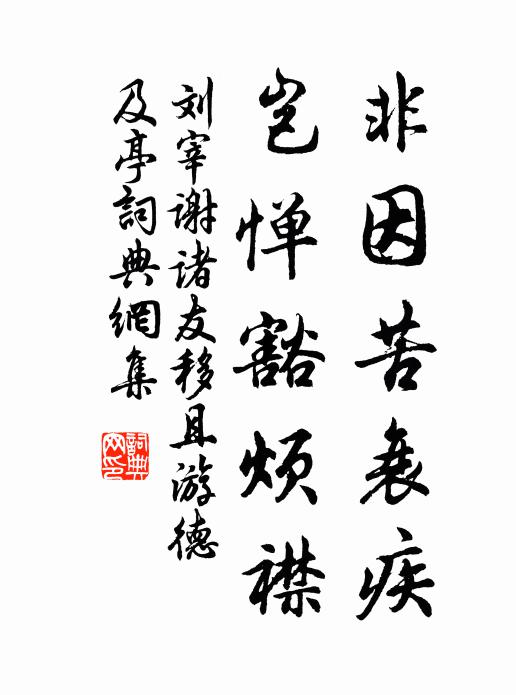 非因苦衰疾
岂惮豁烦襟
刘宰谢诸友移具游德
及亭詞典網集
詞典
网印